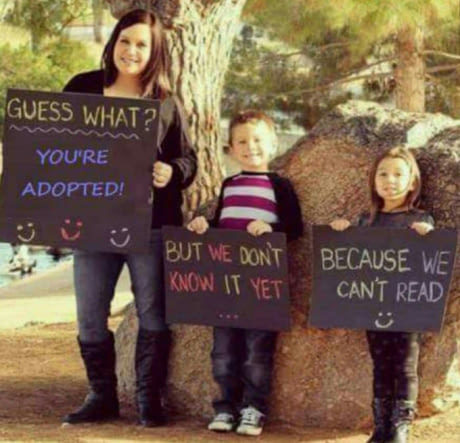 GUESS WHAT?
YOU'RE
ADOPTED!
BUT WE DON'T
KNOW IT YET
...
BECAUSE WE
CAN'T READ